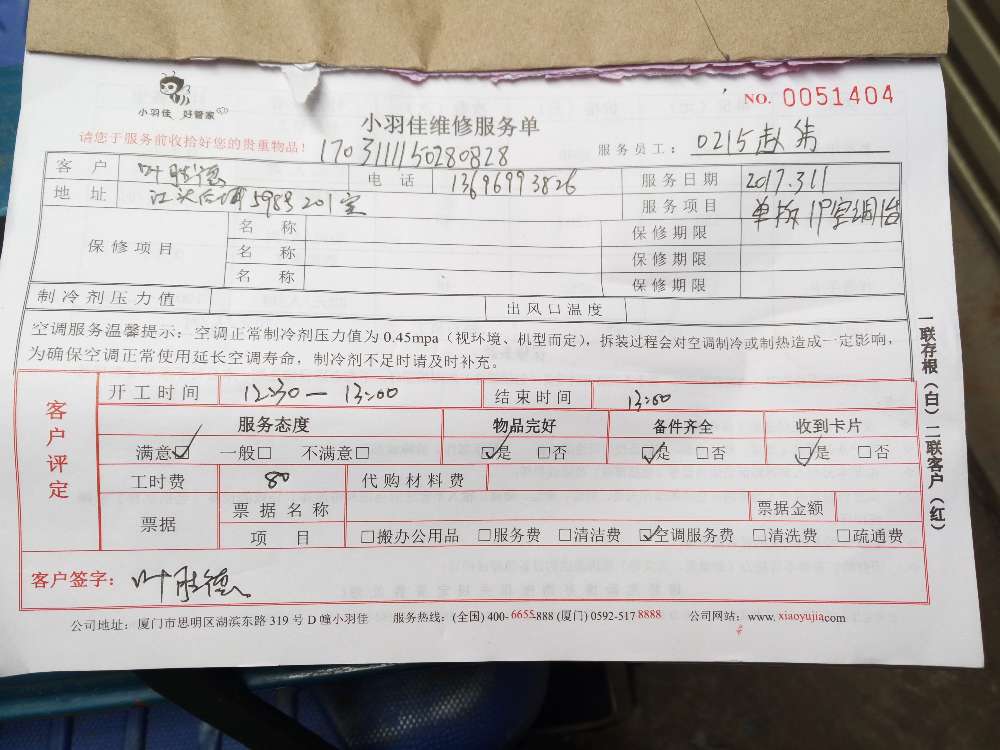 小羽佳 好管家
NO. 0051404
小羽佳维修服务单
请您于服务前收拾好您的贵重物品！
1703111150280828
服务员工： 0215
客 户 叶胜德 电 话 13696993826 服务日期 2017.3.11
地 址 江头 598号201室 服务项目 单拆1P空调1台
保修项目 名 称 保修期限
名 称 保修期限
名 称 保修期限
制冷剂压力值 出风口温度
空调服务温馨提示：空调正常制冷剂压力值为 0.45mpa（视环境、机型而定），拆装过程会对空调制冷或制热造成一定影响，
为确保空调正常使用延长空调寿命，制冷剂不足时请及时补充。
客户评定
开工时间 12:30—13:00 结束时间 13:00
服务态度 物品完好 备件齐全 收到卡片
满意☑ 一般□ 不满意□ ☑是 □否 ☑是 □否 ☑是 □否
工时费 80 代购材料费
票据 票据名称 票据金额
项 目 □搬办公用品 □服务费 □清洁费 ☑空调服务费 □清洗费 □疏通费
客户签字： 叶胜德
一联存根（白）二联客户（红）
公司地址：厦门市思明区湖滨东路 319 号 D 幢小羽佳 服务热线：(全国) 400-6655-888 (厦门) 0592-517 8888 公司网站：www.xiaoyujia.com